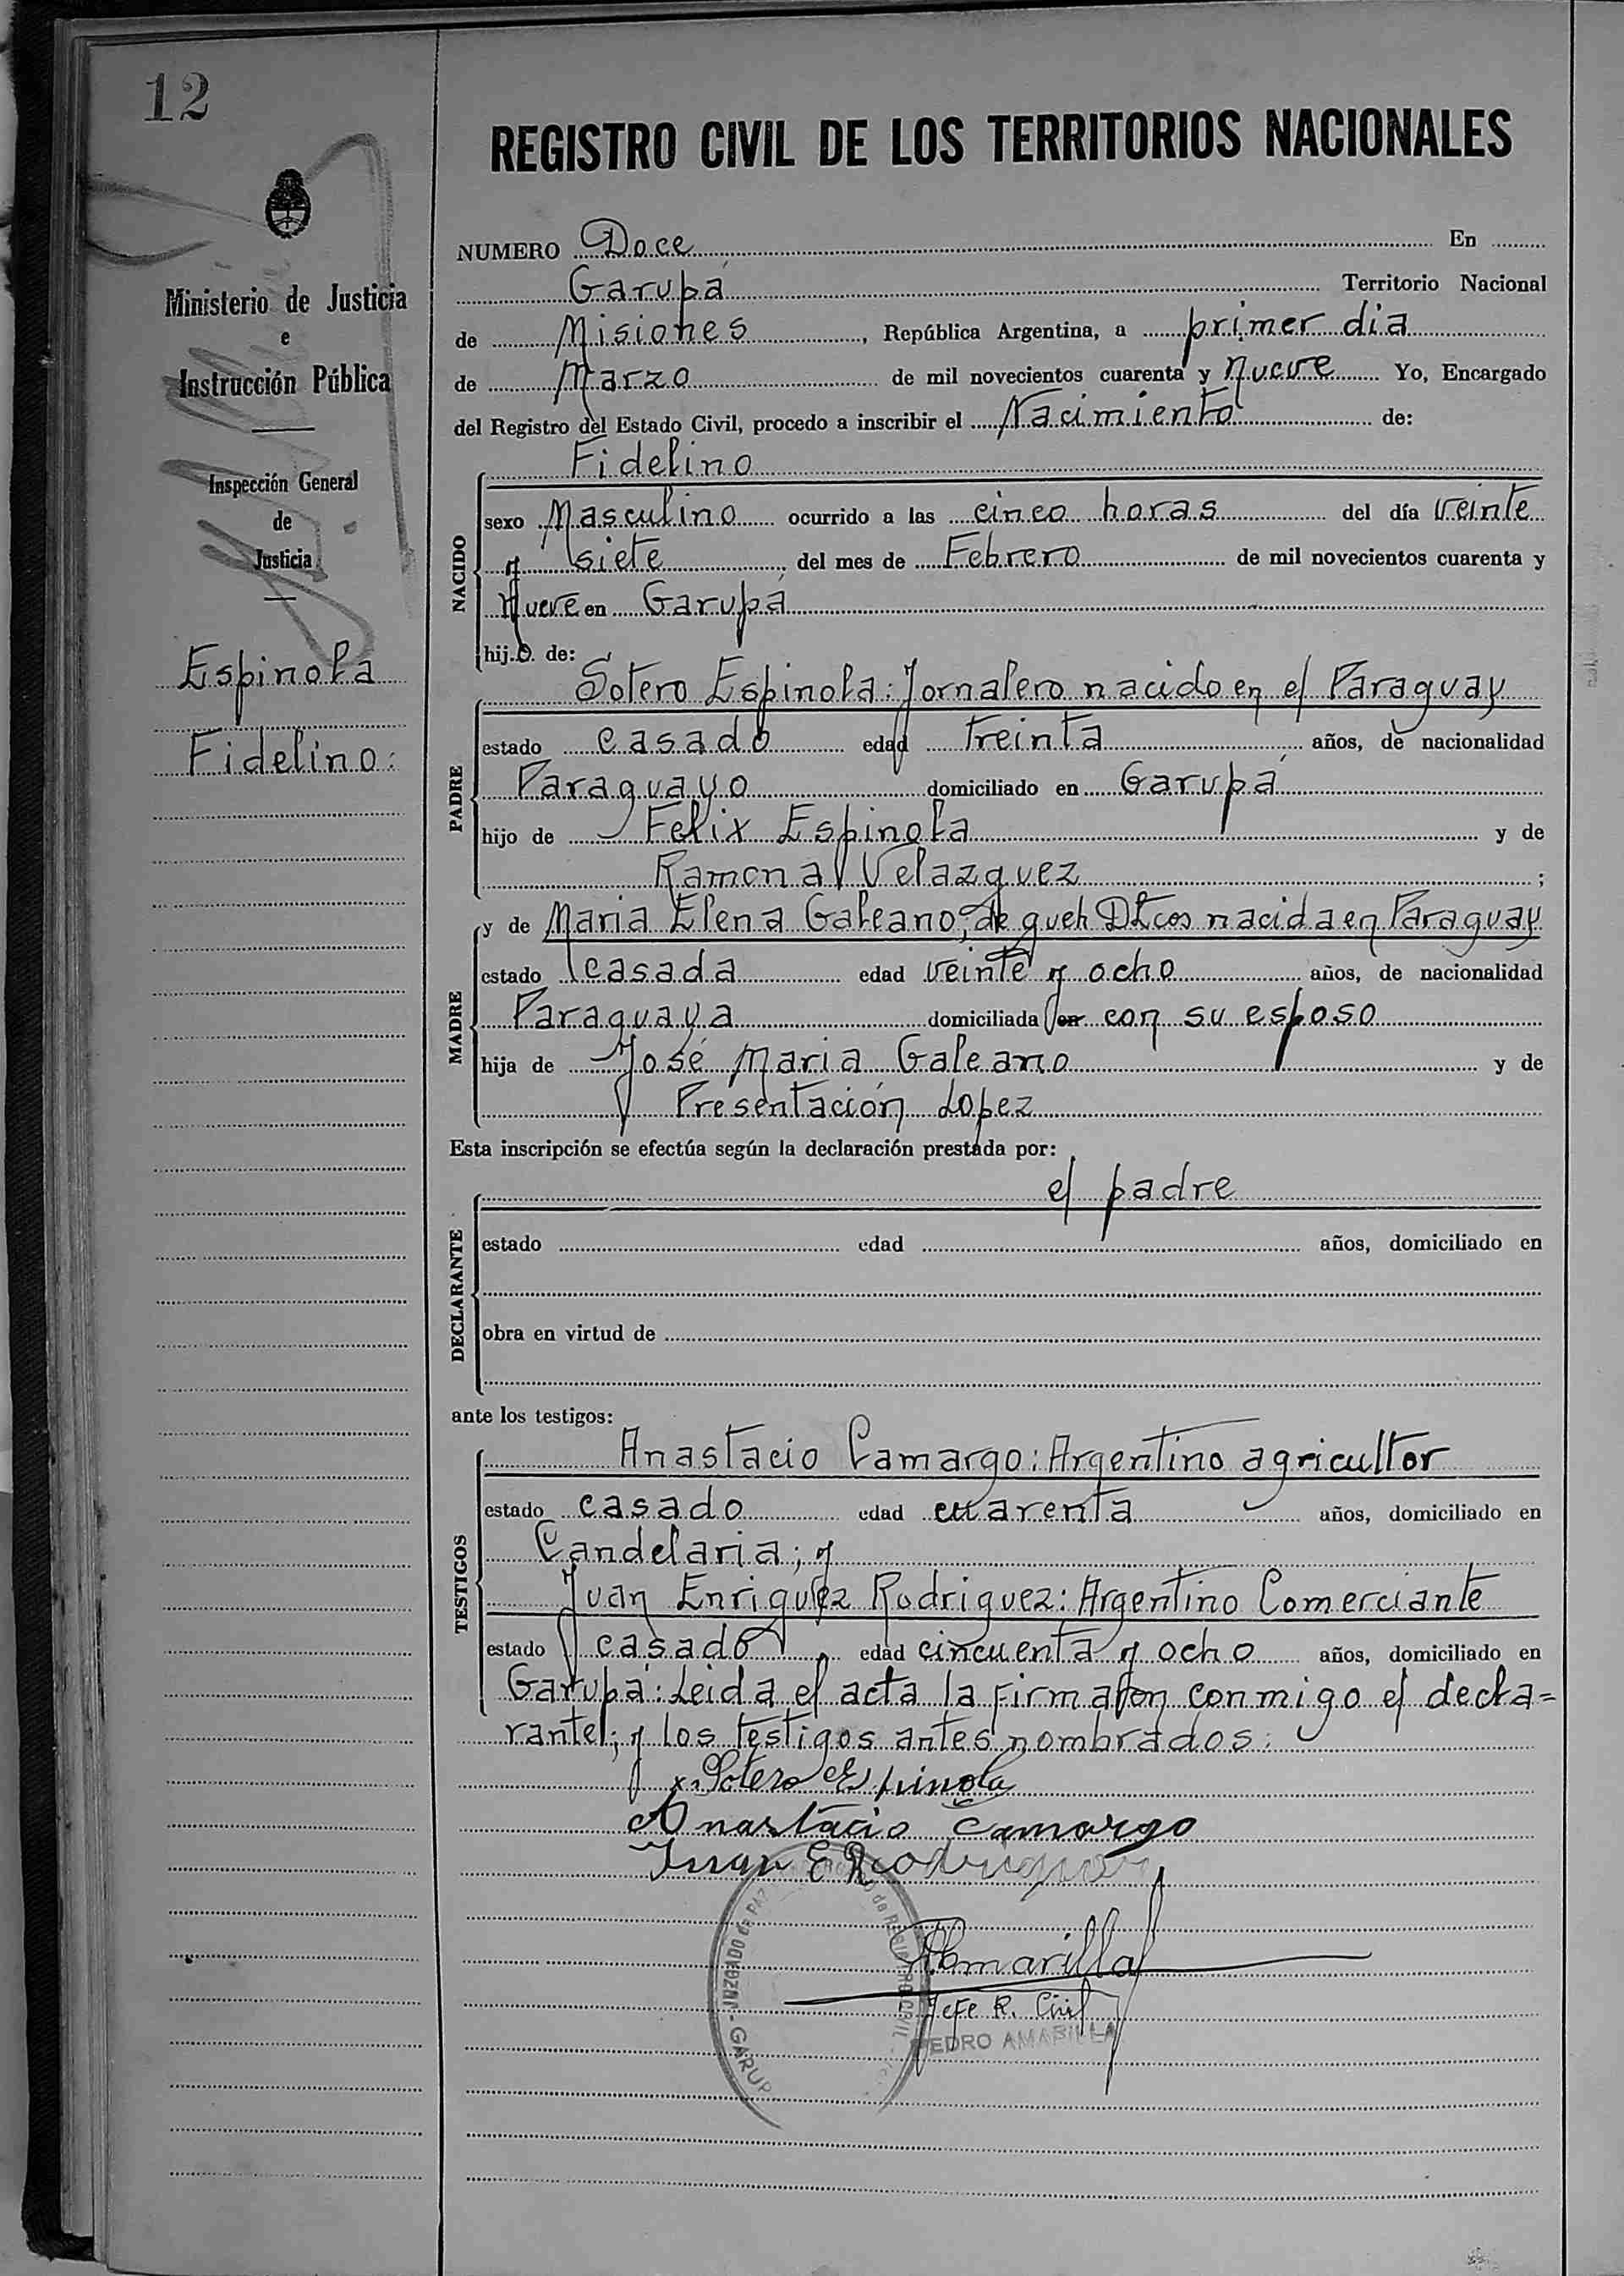 12
REGISTRO CIVIL DE LOS TERRITORIOS NACIONALES
Ministerio de Justicia
e
Instrucción Pública
Inspección General
de
Justicia
Espinola
Fidelino:
NUMERO Doce En
Garupá Territorio Nacional
de Misiones, República Argentina, a primer dia
de Marzo de mil novecientos cuarenta y nueve Yo, Encargado
del Registro del Estado Civil, procedo a inscribir el Nacimiento de:
Fidelino
NACIDO
sexo Masculino ocurrido a las cinco horas del día veinte
y siete del mes de Febrero de mil novecientos cuarenta y
Nueve en Garupá
hij.o. de:
Sotero Espinola: Jornalero nacido en el Paraguay
PADRE
estado casado edad treinta años, de nacionalidad
Paraguayo domiciliado en Garupá
hijo de Felix Espinola y de
Ramona Velazquez ;
y de Maria Elena Galeano, de queh Dtcos nacida en Paraguay
MADRE
estado casada edad veinte y ocho años, de nacionalidad
Paraguaya domiciliada en con su esposo
hija de José Maria Galeano y de
Presentación Lopez
Esta inscripción se efectúa según la declaración prestada por:
el padre
DECLARANTE
estado edad años, domiciliado en
obra en virtud de
ante los testigos:
Anastacio Camargo: Argentino agricultor
TESTIGOS
estado casado edad cuarenta años, domiciliado en
Candelaria; y
Juan Enriquez Rodriguez: Argentino Comerciante
estado casado edad cincuenta y ocho años, domiciliado en
Garupá: Leida el acta la firmaron conmigo el decla=
rante; y los testigos antes nombrados:
x Sotero Espinola
Anastacio Camargo
Juan E Rodriguez
PAmarilla
Jefe R. Civil
PEDRO AMARILLA
JUZGADO DE PAZ - GARUP
de REGISTRO CIVIL